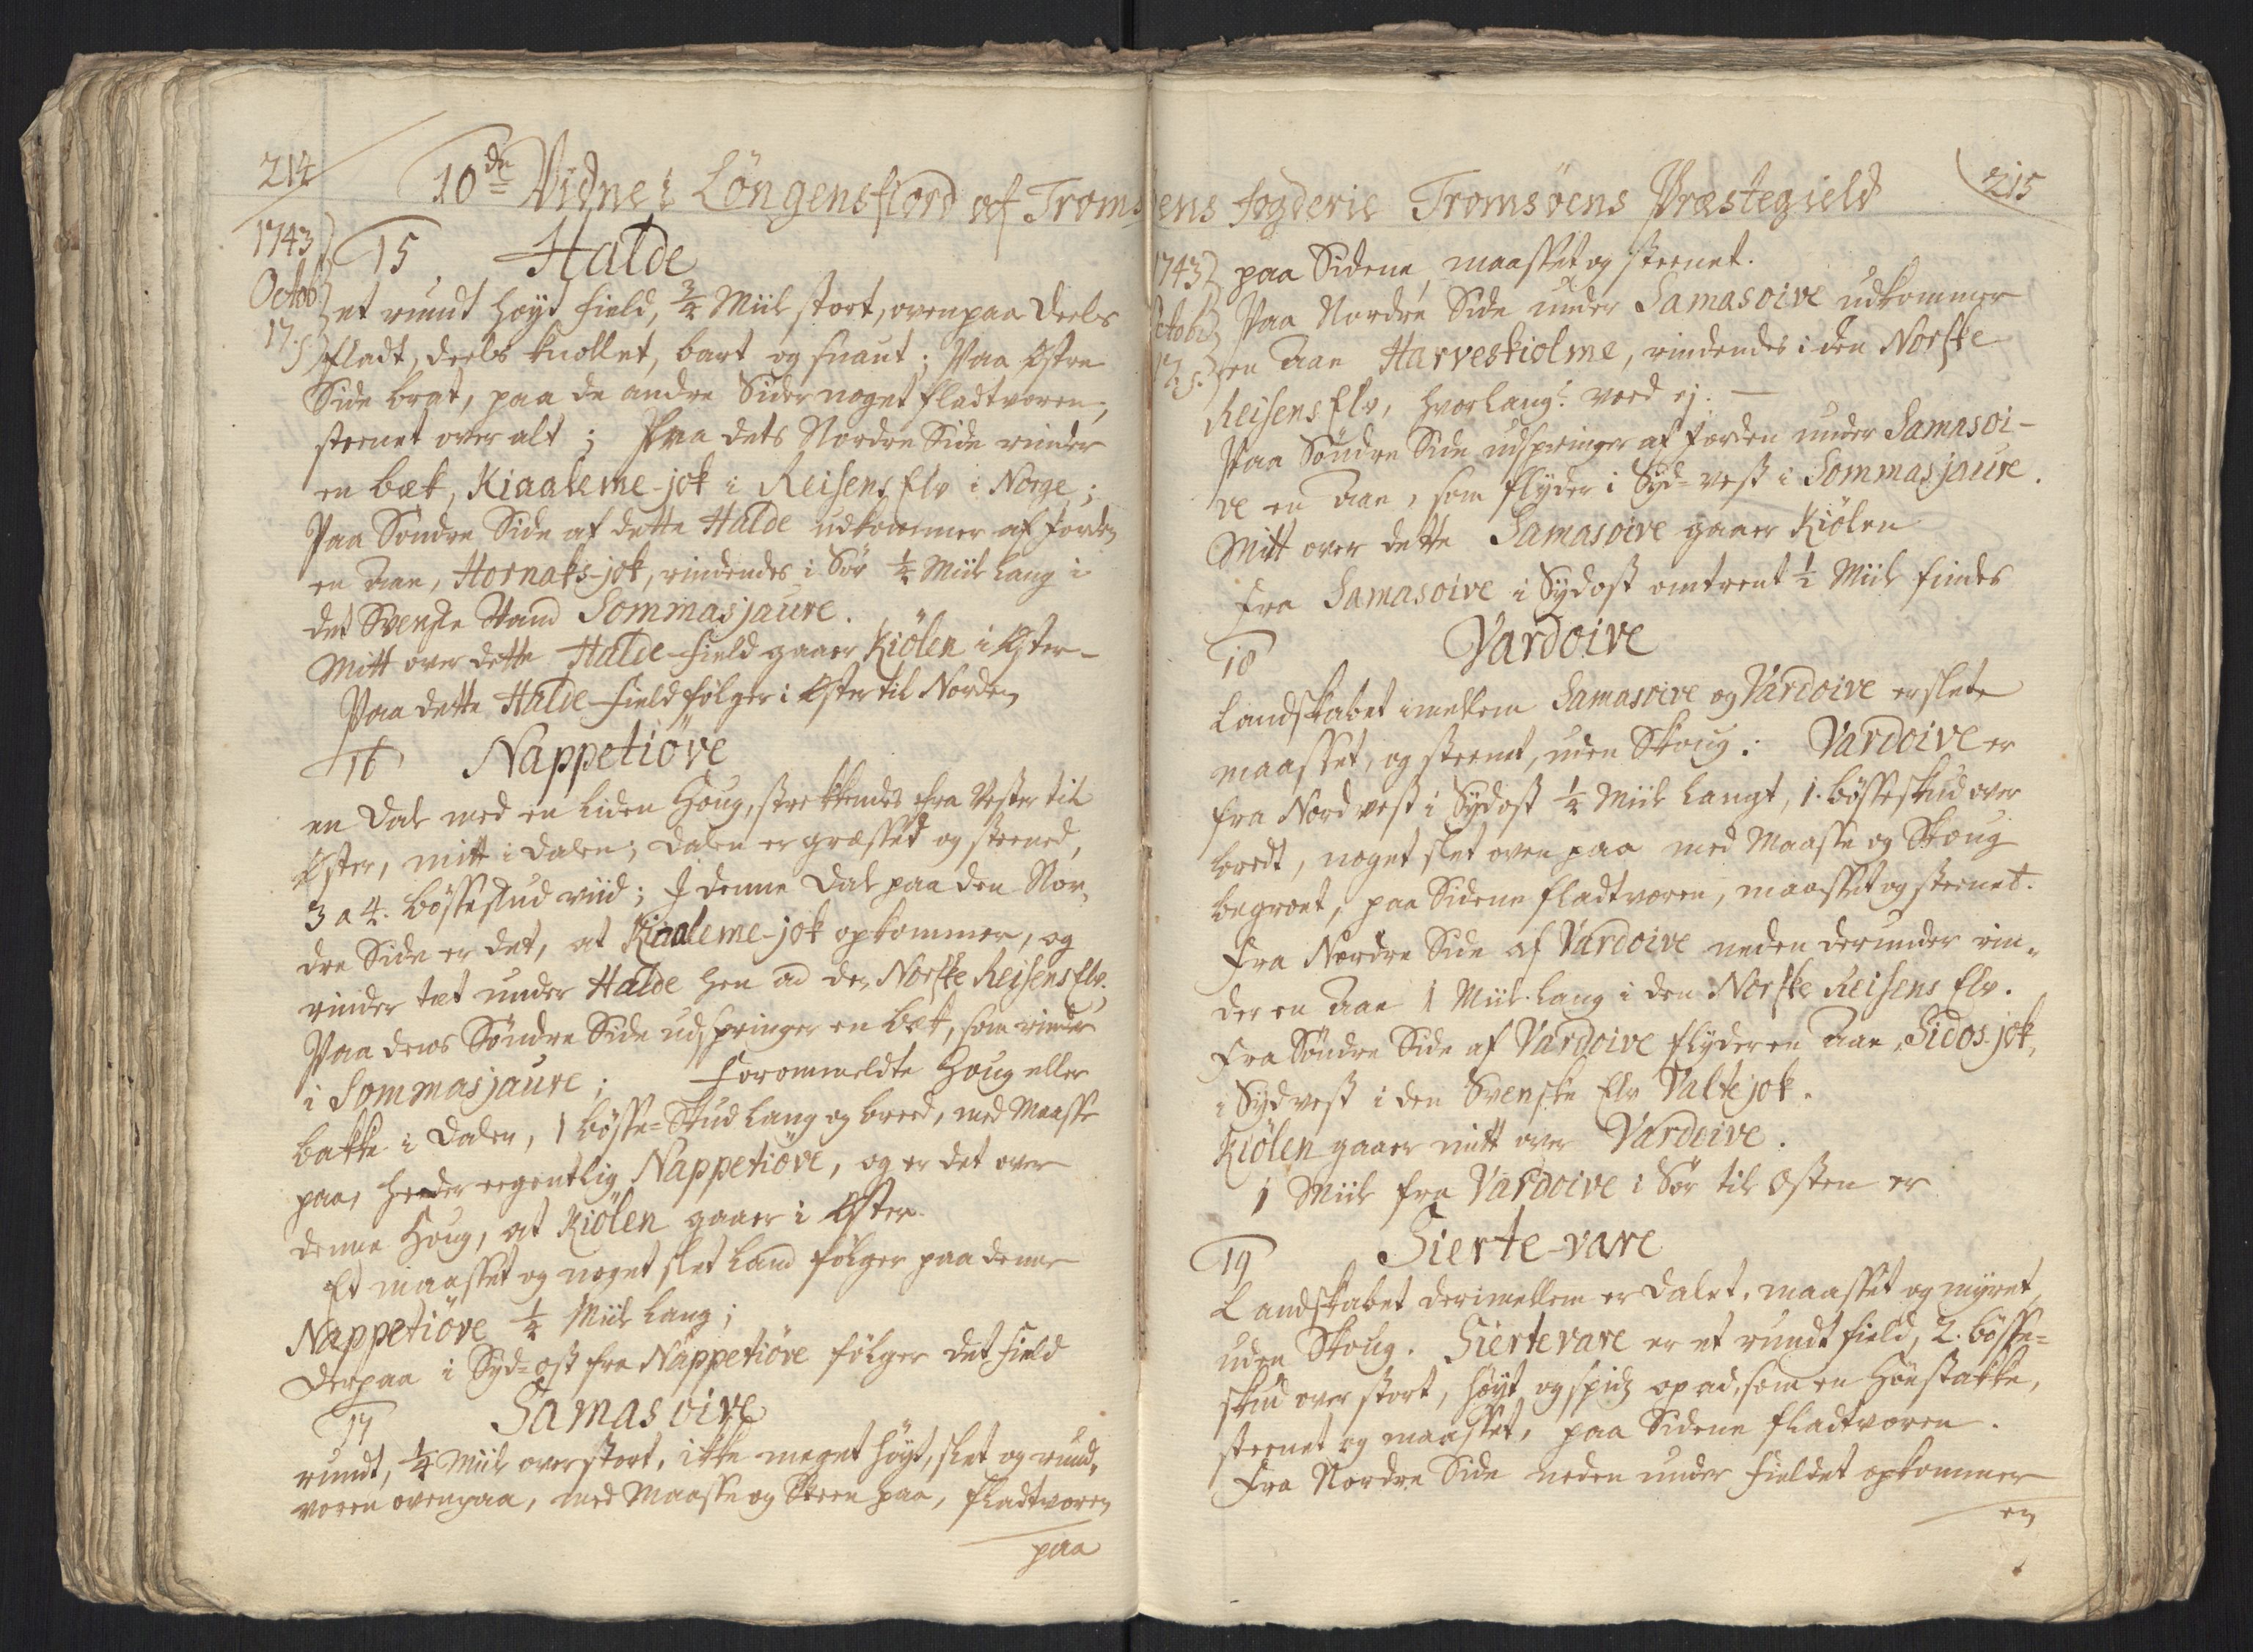 214
10de Vidne i Löngensfiord af Troms
1743
Octob:
17. s.
15 Halde
et rundt høyt field, 3/4 Miil stort, ovenpaa deels
fladt, deels knollet, bart og snaut; Paa Østre
Side brat, paa de andre Sider noget fladtvoren,
steenet over alt; Fra dets Nordre Side rinder
en bæk, Kiaaleme-jok i Reisens Elv i Norge;
Paa Søndre Side af dette Halde udkommer af Jorden
en Aae, Hornaks-jok, rindendes i Sør 1/4 Miil lang i
det Svenske Vand Sommasjaure.
Mitt over dette Halde-field gaaer Kiölen i Øster-
Paa dette Halde-field følger i Øster til Norden
16 Nappetiöve
en Dal med en liden Houg, strekkendes fra Vester til
Øster, mitt i Dalen; Dalen er græsset og steened,
3 a 4. bösseskud viid; I denne Dal paa den Nor-
dre Side er det, at Kiaaleme-jok opkommer, og
rinder tæt under Halde hen ad den Norske Reisens Elv.
Paa dens Søndre Side udspringer en bæk, som rinder
i Sommasjaure; Forommeldte Houg eller
bakke i Dalen, 1 bösse-Skud lang og breed, med Maasse
paa, heeder egentlig Nappetiöve, og er det over
denne Houg, at Kiölen gaaer i Øster.
Et maasset og noget slet land følger paa denne
Nappetiöve 1/4 Miil lang;
Derpaa i Syd-ost fra Nappetiöve følger det field
17 Samasoive
rundt, 1/4 Miil over stort, ikke meget høyt, slet og rund-
voren ovenpaa, med Maasse og Steen paa, fladtvoren
paa
öens Fogderie Tromsöens Præstegield
215
1743
Octobr
17. s.
paa Siderne, maasset og steenet.
Paa Nordre Side under Samasoive udkommer
en Aae Harveskiolme, rindendes i den Norske
Reisens Elv, hvor lang? veed ej. —
Paa Söndre Side udspringer af Jorden under Samasoi-
ve en Aae, som flyder i Syd-vest i Sommasjaure.
Mitt over dette Samasoive gaaer Kiölen
Fra Samasoive i Sydost omtrent 1/2 Miil findes
18 Vardoive
Landskabet imellem Samasoive og Vardoive er slet
maasset, og steenet, uden Skoug: Vardoive er
fra Nordvest i Sydost 1/4 Miil langt, 1. bösseskud over
bredt, noget slet ovenpaa med Maasse og Skoug
begroet, paa Siderne fladtvoren, maasset og steenet.
Fra Nordre Side af Vardoive neden derunder rin-
der en Aae 1 Miil lang i den Norske Reisens Elv.
Fra Söndre Side af Vardoive flyder en Aae, Sidos-jok,
i Sydvest i den Svenske Elv Valtejok.
Kiölen gaaer mitt over Vardoive.
1 Miil fra Vardoive i Sör til Osten er
19 Sierte-vare
Landskabet derimellem er dalet, maasset og myret,
uden Skoug. Siertevare er et rundt field, 2. bösse-
skud over stort, höyt og spids op ad, som en Höestakke,
steenet og maasset, paa Siderne fladtvoren.
Fra Nordre Side neden under Fieldet opkommer
en